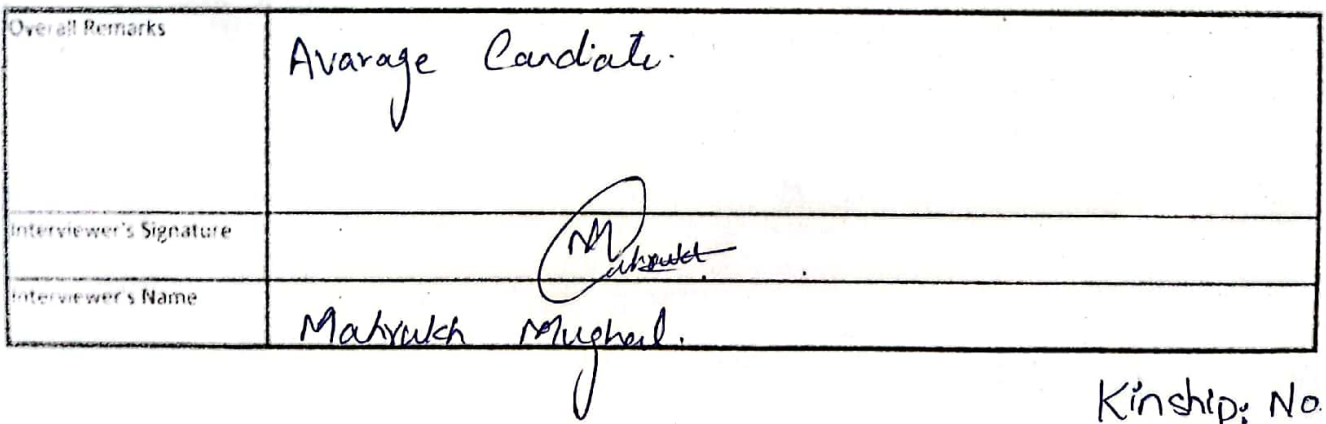 Overall Remarks
Avarage Candiate.
Interviewer's Signature
Mahrukh
Interviewer's Name
Mahrukh Mughal.
Kinship: No.